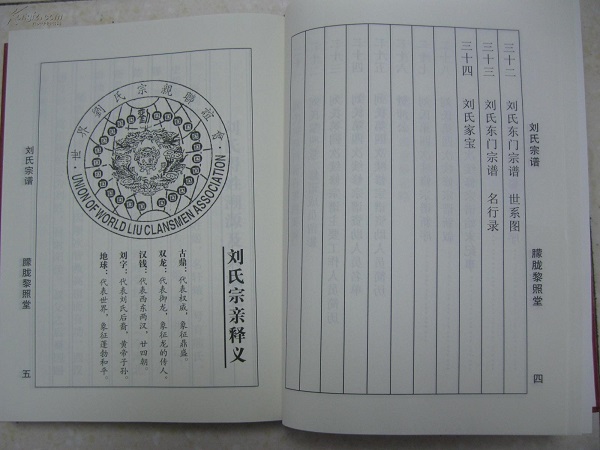 刘氏宗谱
三十二 刘氏东门宗谱 世系图
三十三 刘氏东门宗谱 名行录
三十四 刘氏家宝
朦胧黎照堂
四
世界劉氏宗親聯誼會
UNION OF WORLD LIU CLANSMEN ASSOCIATION
刘氏宗亲释义
古鼎：代表权威，象征鼎盛。
双龙：代表御龙，象征龙的传人。
汉钱：代表西东两汉，廿四朝。
刘字：代表刘氏后裔，黄帝子孙。
地球：代表世界，象征蓬勃和平。
刘氏宗谱
朦胧黎照堂
五